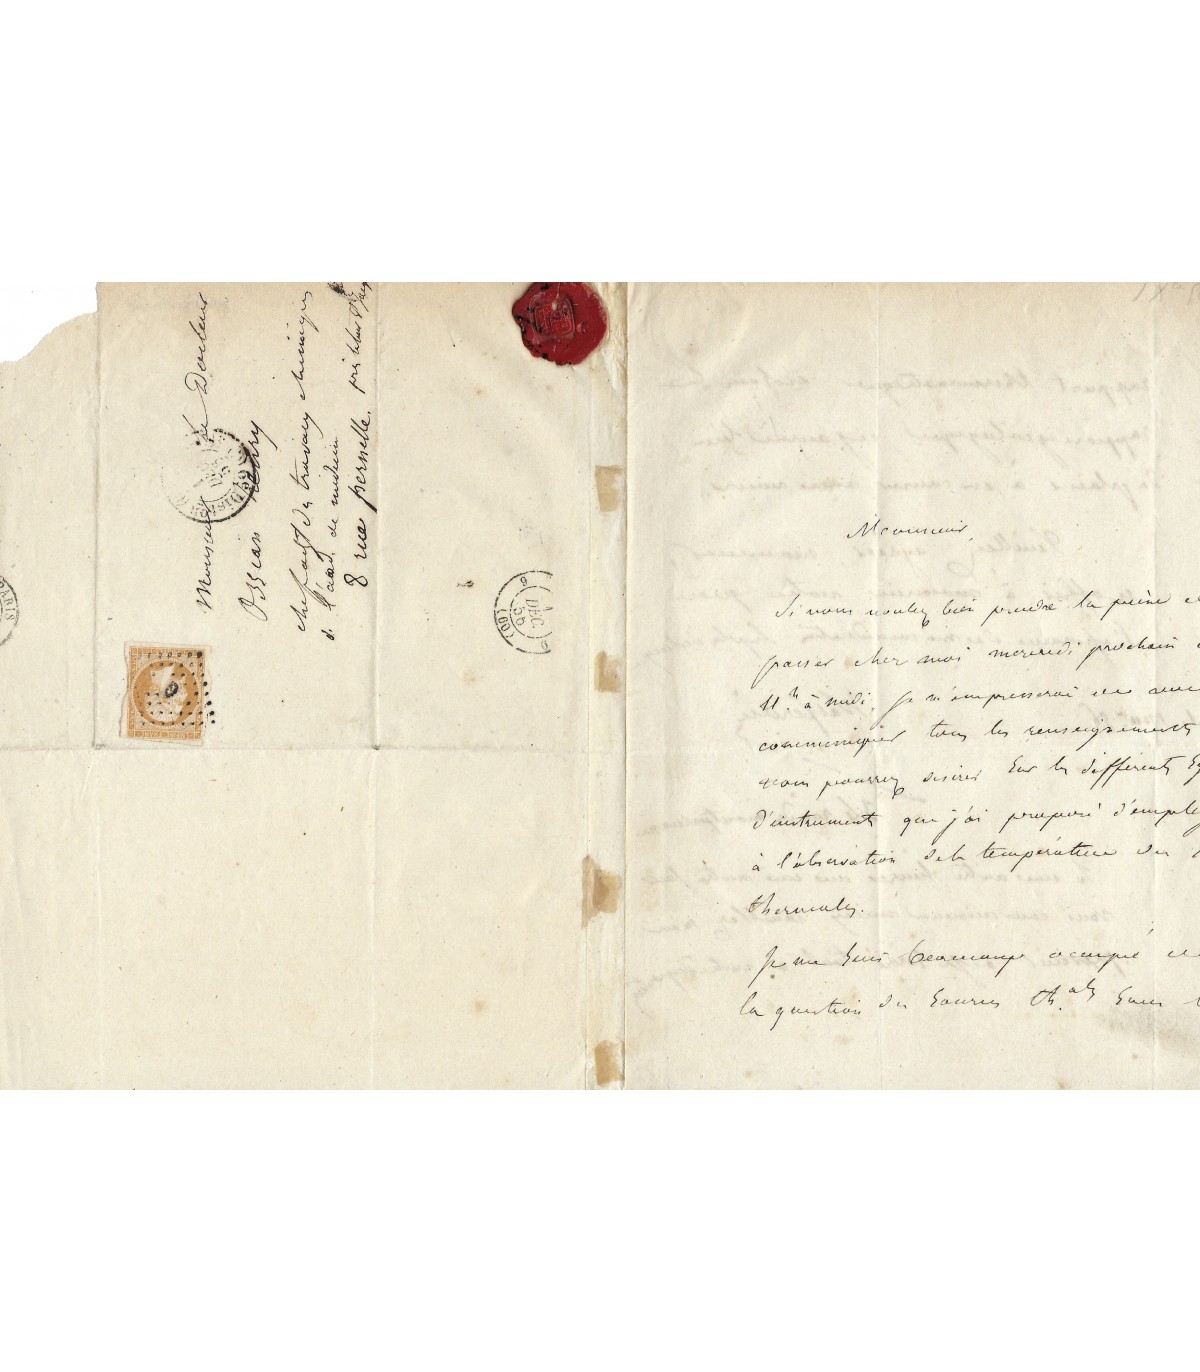 Monsieur le Docteur
Ossian henry
chef des travaux chimiques
d. l'acad. de médecine
8 rue pernelle. près
DEC
(60)
PARIS
Monsieur,
Si vous voulez bien prendre la peine de
passer chez moi mercredi prochain
11.h à midi, je m'empresserai de vous
communiquer tous les renseignements
vous pourrez désirer sur les différents
d'instruments que j'ai proposé d'employ
à l'observation de la température des
thermales.
Je me suis beaucoup occupé de
la question des sources th.ales sous